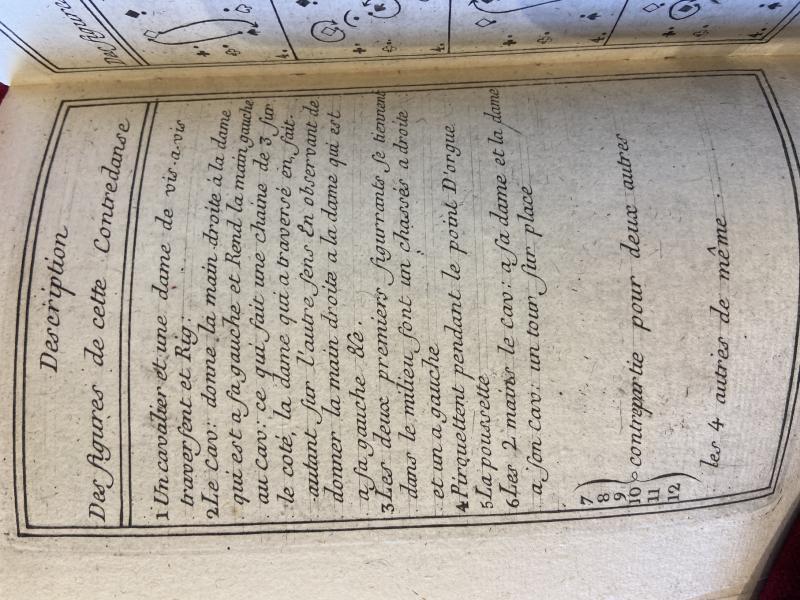 Description
Des figures de cette Contredanse
1 Un cavalier et une dame de vis-a-vis
traversent et Rig:
2 Le Cav: donne la main droite à la dame
qui est a sa gauche et Rend la main gauche
au Cav: ce qui fait une chaine de 3 sur
le coté, la dame qui a traversé en, fait
autant sur l'autre sens En observant de
donner la main droite a la dame qui est
a sa gauche &c.
3 Les deux premiers figurrants se tiennent
dans le milieu font un chassés a droite
et un a gauche
4 Pirquettent pendant le point D'orgue
5 La poussette
6 Les 2 mains le Cav: a sa dame et la dame
a son Cav: un tour sur place
7
8
9
10 contrepartie pour deux autres
11
12
les 4 autres de même.
4.
4.
4.
4.